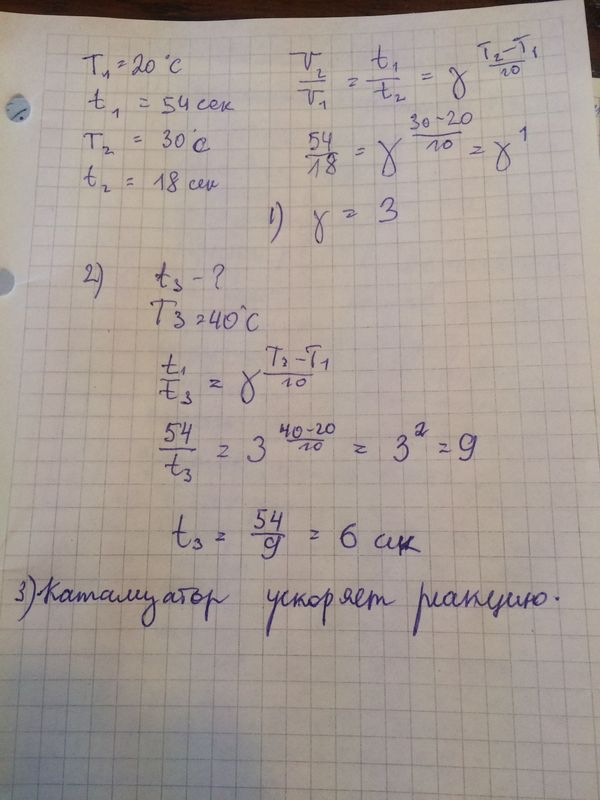 T₁ = 20°C
t₁ = 54 сек
T₂ = 30°C
t₂ = 18 сек
V₂/V₁ = t₁/t₂ = γ^((T₂-T₁)/10)
54/18 = γ^((30-20)/10) = γ¹
1) γ = 3
2) t₃ - ?
T₃ = 40°C
t₁/t₃ = γ^((T₃-T₁)/10)
54/t₃ = 3^((40-20)/10) = 3² = 9
t₃ = 54/9 = 6 сек
3) Катализатор ускоряет реакцию.